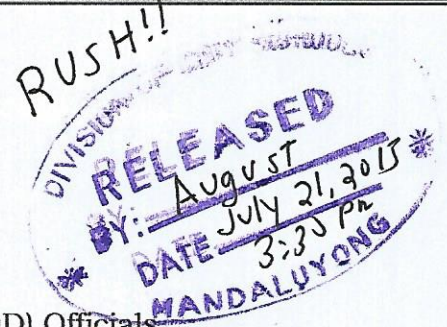 RUSH!!
DIVISION OF
RELEASED
BY: August
DATE July 21, 2015
3:35 Pm
MANDALUYONG
D) Officials